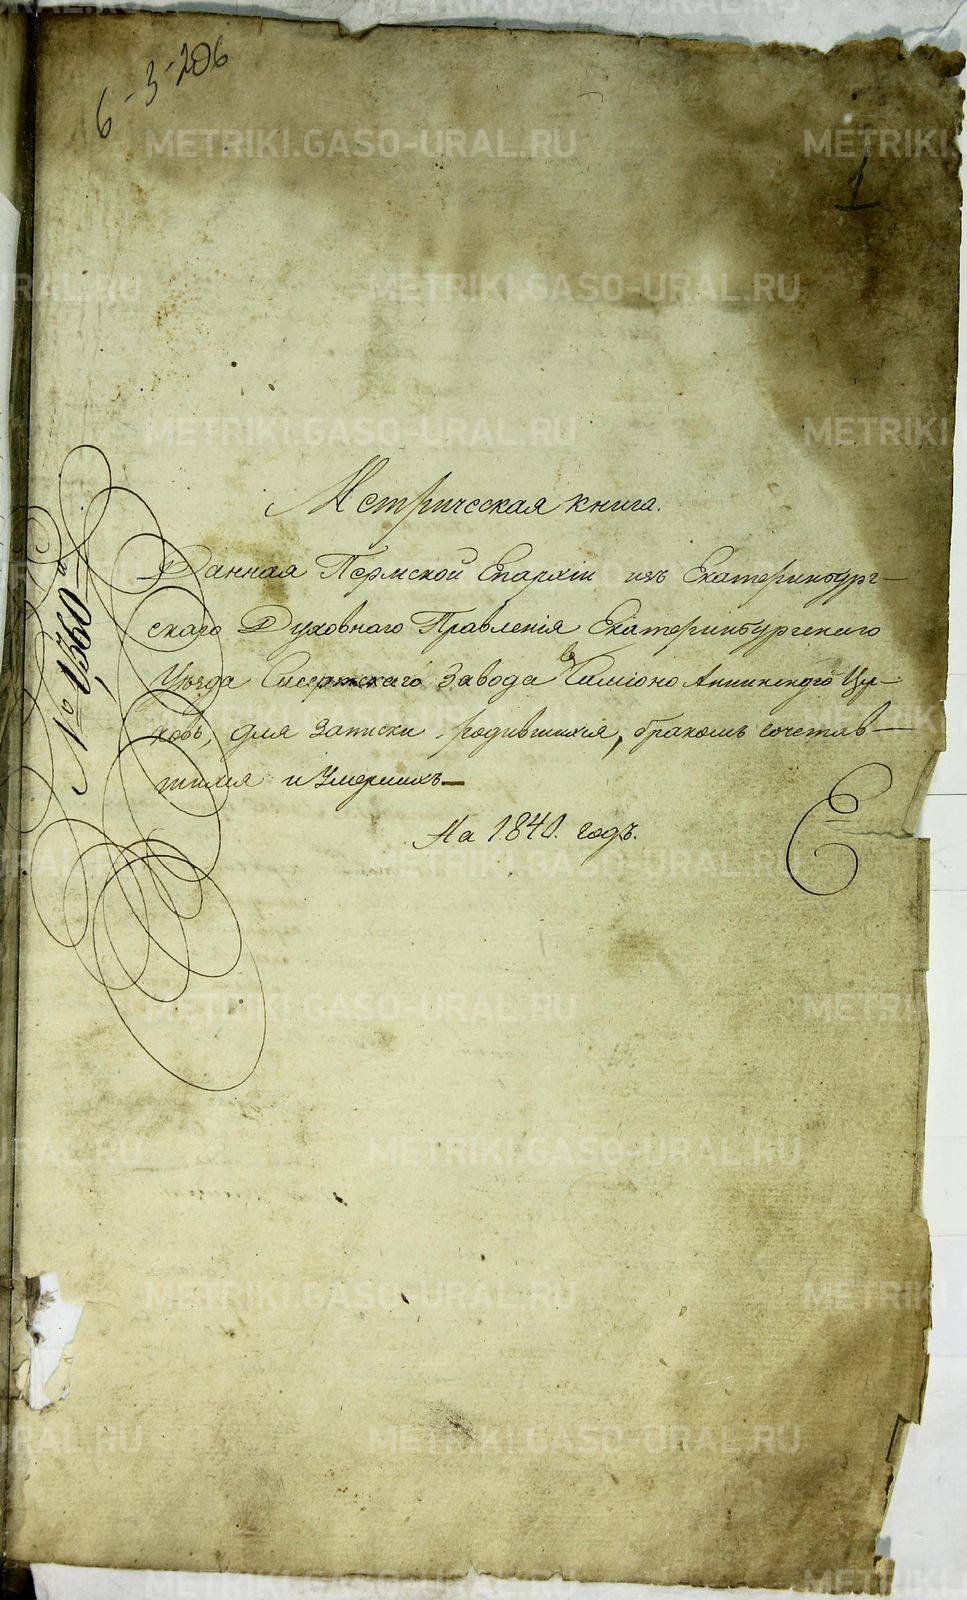 6-3-206
1
Метрическая книга.
Данная Пермской Епархіи изъ Екатеринбург-
скаго Духовнаго Правленія Екатеринбургскаго
Уѣзда Сисертскаго Завода въ Симіоно Аннинскую Цер-
ковь, для записки родившихся, бракомъ сочетав-
шихся и Умершихъ—
На 1840. годъ.
№ 1360й
METRIKI.GASO-URAL.RU